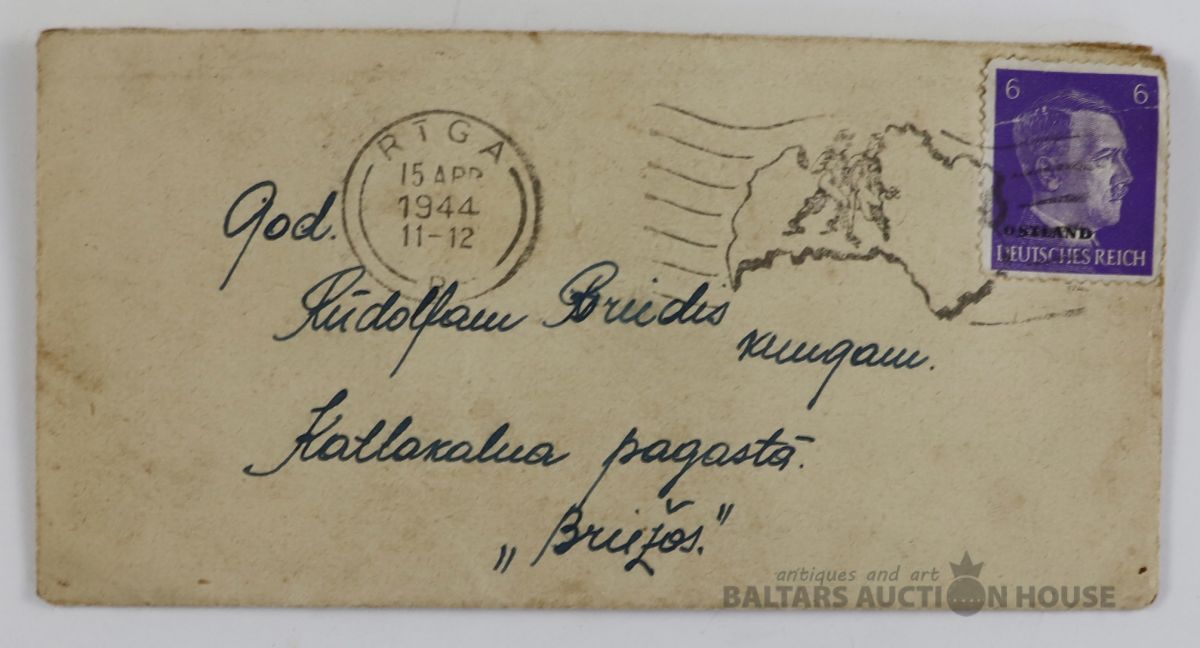 6 6
OSTLAND
DEUTSCHES REICH
RĪGA
15 APR
1944
11-12
God.
Rūdolfam Briedis
kungam.
Katlakalna pagastā.
„Briežos."
antiques and art
BALTARS AUCTION HOUSE